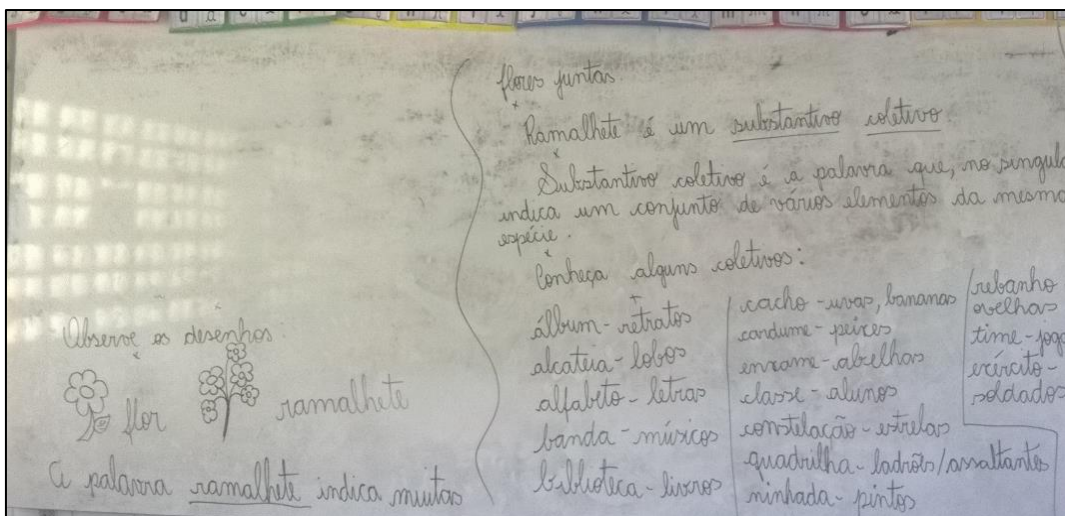 Observe os desenhos
flor
ramalhete
A palavra ramalhete indica muitas
flores juntas.
Ramalhete é um substantivo coletivo
Substantivo coletivo é a palavra que, no singula
indica um conjunto de vários elementos da mesma
espécie.
Conheça alguns coletivos:
álbum - retratos
alcateia - lobos
alfabeto - letras
banda - músicos
biblioteca - livros
cacho - uvas, bananas
cardume - peixes
enxame - abelhas
classe - alunos
constelação - estrelas
quadrilha - ladrões/assaltantes
ninhada - pintos
rebanho
ovelhas
time - joga
exército -
soldados